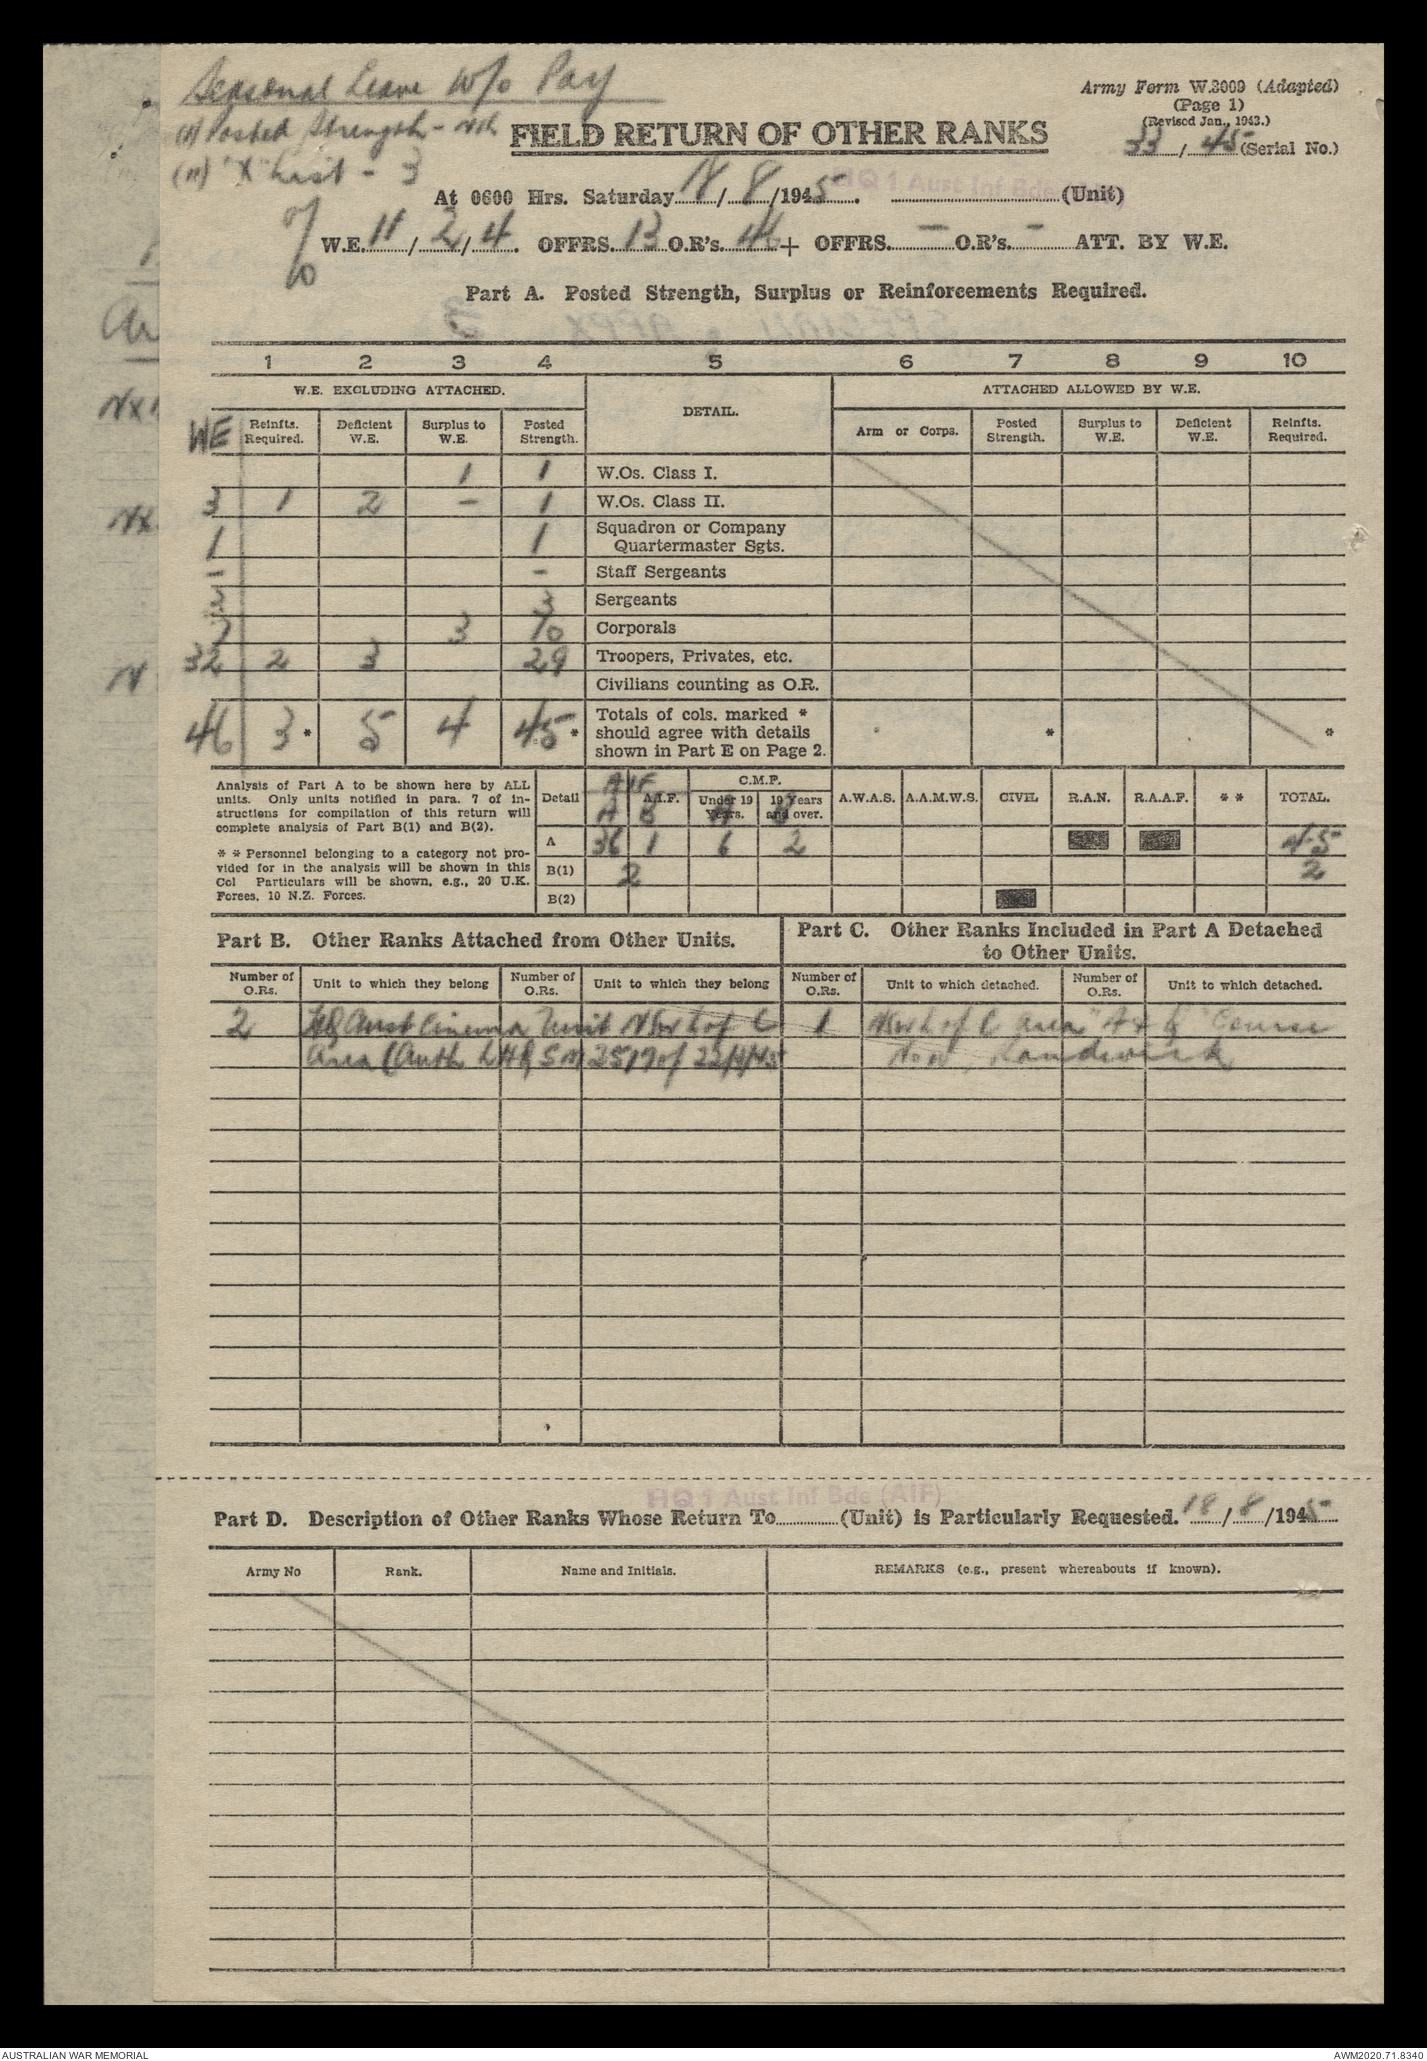 Seasonal Leave w/o Pay
(1) Posted Strength -
(11) "X" List - 3
Army Form W.3009 (Adapted)
(Page 1)
(Revised Jan., 1943.)
33/45 (Serial No.)
FIELD RETURN OF OTHER RANKS
At 0600 Hrs. Saturday 18/8/1945. HQ 1 Aust Inf Bde (Unit)
W.E. 11/2/4. OFFRS. 13 O.R's. 46 + OFFRS. - O.R's. - ATT. BY W.E.
Part A. Posted Strength, Surplus or Reinforcements Required.
1 2 3 4 5 6 7 8 9 10
W.E. EXCLUDING ATTACHED. DETAIL. ATTACHED ALLOWED BY W.E.
WE Reinfts. Required. Deficient W.E. Surplus to W.E. Posted Strength. Arm or Corps. Posted Strength. Surplus to W.E. Deficient W.E. Reinfts. Required.
1 1 W.Os. Class I.
3 1 2 - 1 W.Os. Class II.
1 1 Squadron or Company Quartermaster Sgts.
- - Staff Sergeants
3 3 Sergeants
7 3 10 Corporals
32 2 3 29 Troopers, Privates, etc.
Civilians counting as O.R.
46 3 * 5 4 45 * Totals of cols. marked * should agree with details shown in Part E on Page 2. * *
Analysis of Part A to be shown here by ALL
units. Only units notified in para. 7 of in-
structions for compilation of this return will
complete analysis of Part B(1) and B(2).
* * Personnel belonging to a category not pro-
vided for in the analysis will be shown in this
Col Particulars will be shown, e.g., 20 U.K.
Forces, 10 N.Z. Forces.
Detail AIF A.I.F. C.M.F. A.W.A.S. A.A.M.W.S. CIVIL R.A.N. R.A.A.F. * * TOTAL.
A B Under 19 Years. A 19 Years and over. B
A 36 1 6 2 45
B(1) 2 2
B(2)
Part B. Other Ranks Attached from Other Units.
Part C. Other Ranks Included in Part A Detached
to Other Units.
Number of O.Rs. Unit to which they belong Number of O.Rs. Unit to which they belong Number of O.Rs. Unit to which detached. Number of O.Rs. Unit to which detached.
2 Aust Cinema Unit NSW L of C 1 NSW L of C area "A & Q" Course
Area (Auth LHQ SM 3517 of 22/4/45 Randwick
HQ 1 Aust Inf Bde (AIF)
Part D. Description of Other Ranks Whose Return To (Unit) is Particularly Requested. 18/8/1945
Army No Rank. Name and Initials. REMARKS (e.g., present whereabouts if known).
AUSTRALIAN WAR MEMORIAL
AWM2020.71.8340